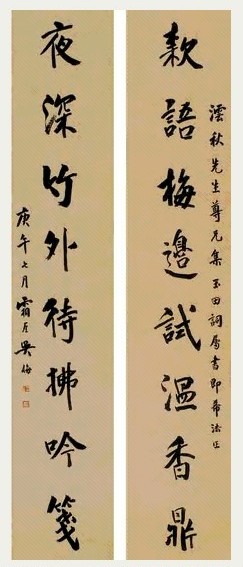 澐秋先生尊兄集玉田詞屬書即希法正
款語梅邊試溫香鼎
夜深竹外待拂吟箋
庚午七月霜厓吳梅